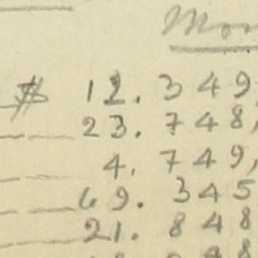 $ 12.349
23.748,
4.749,
69.345
21.848